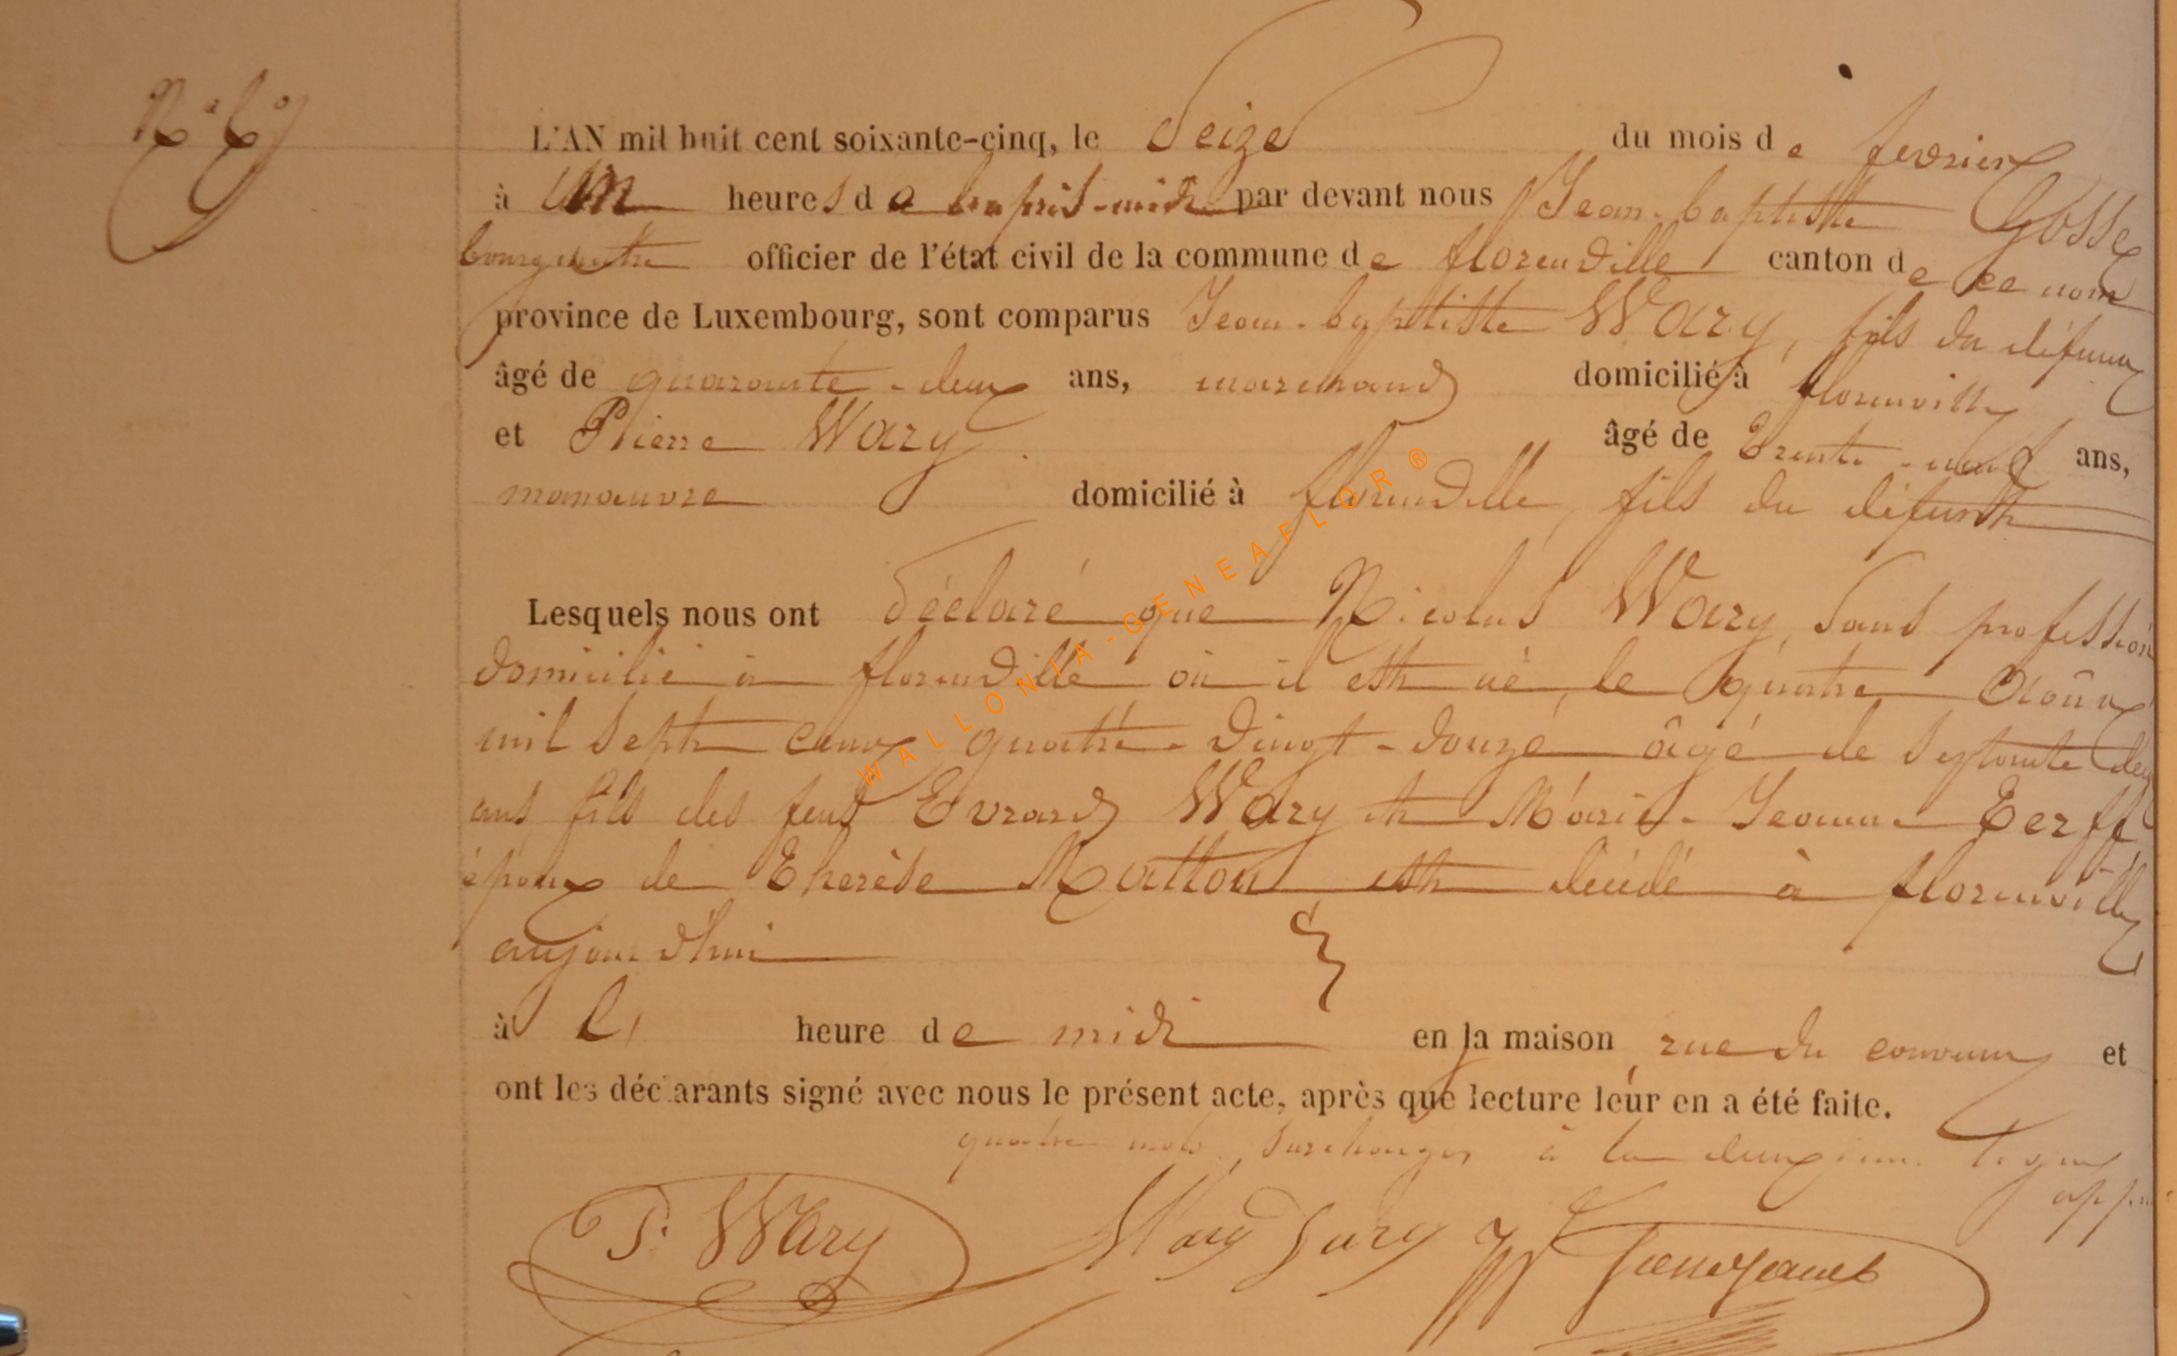 N° 6
L'AN mil huit cent soixante-cinq, le Seize du mois de fevrier
à un heures de l'apris-midi par devant nous Jean-baptiste Gosse
bourgmestre officier de l'état civil de la commune de florenville canton de ce nom
province de Luxembourg, sont comparus Jean-baptiste Wary, fils du défunt
âgé de quarante-deux ans, marchand domicilié à florenville
et Pierre Wary âgé de trente-neuf ans,
manœuvre domicilié à florenville, fils du défunt
Lesquels nous ont déclaré que Nicolas Wary, sans profession
domicilié à florenville où il est né, le quatre Août
mil sept cent quatre-vingt-douze âgé de septante deux
ans fils des feus Evrard Wary et Marie-Jeanne Terff
époux de Therèse Matton est décédé à florenville
aujourd'hui
à l' heure de midi en la maison rue du couvent et
ont les déclarants signé avec nous le présent acte, après que lecture leur en a été faite.
quatre mots surchargés à la deuxième ligne
app
P. Wary Wary
WALLONIA-GENEAFLOR®